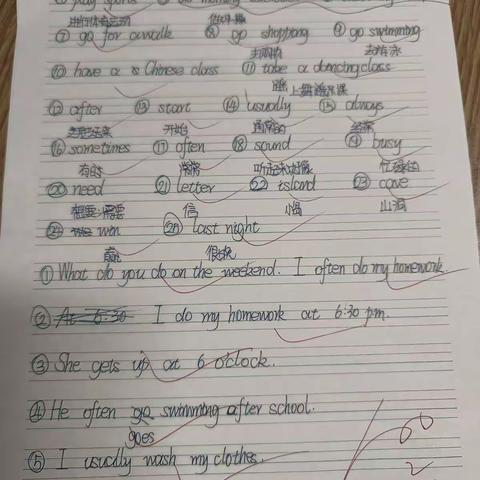 进行体育运动
⑦ go for a walk ⑧ go shopping ⑨ go swimming
去购物 去游泳
⑩ have a Chinese class ⑪ take a dancing class
上舞蹈课
⑫ after ⑬ start ⑭ usually ⑮ always
开始 通常的
⑯ sometines ⑰ often ⑱ sound ⑲ busy
有时 常常 听起来好像 忙碌的
⑳ need ㉑ letter ㉒ island ㉓ cave
想要;需要 信 岛 山洞
㉔ win last night
赢
① What do you do on the weekend. I often do my homework
② At 6:30 I do my homework at 6:30 pm.
③ She gets up at 6 o'clock.
④ He often go swimming after school.
goes
⑤ I usually wash my clothes.